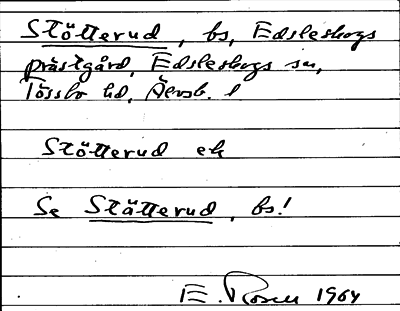 Stötterud, bs, Edsleskogs
prästgård, Edsleskogs sn,
Tössbo hd, Älvsb. l
Stötterud ek
Se Stätterud, bs!
E. Rosen 1964